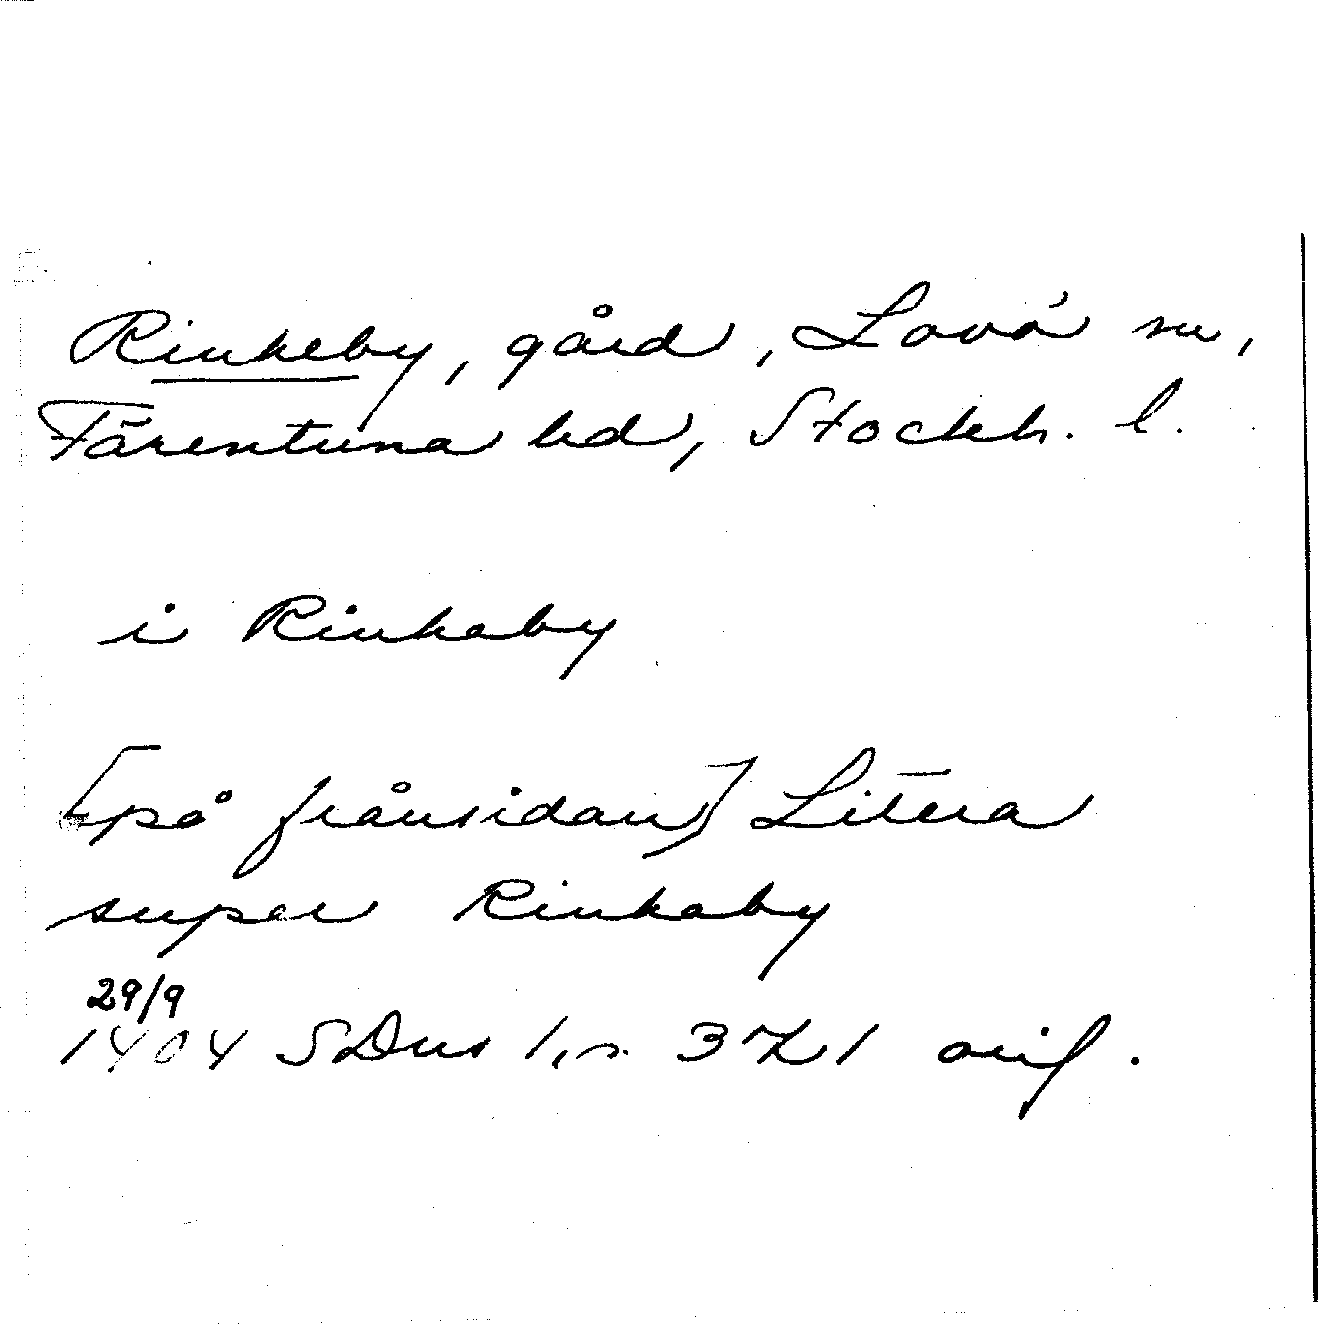 Rinkeby, gård, Lovö sn,
Färentuna hd, Stockh. l.
i Rinkaby
[på frånsidan] Litera
super Rinkaby
29/9
1404 SDns 1, 371 orig.